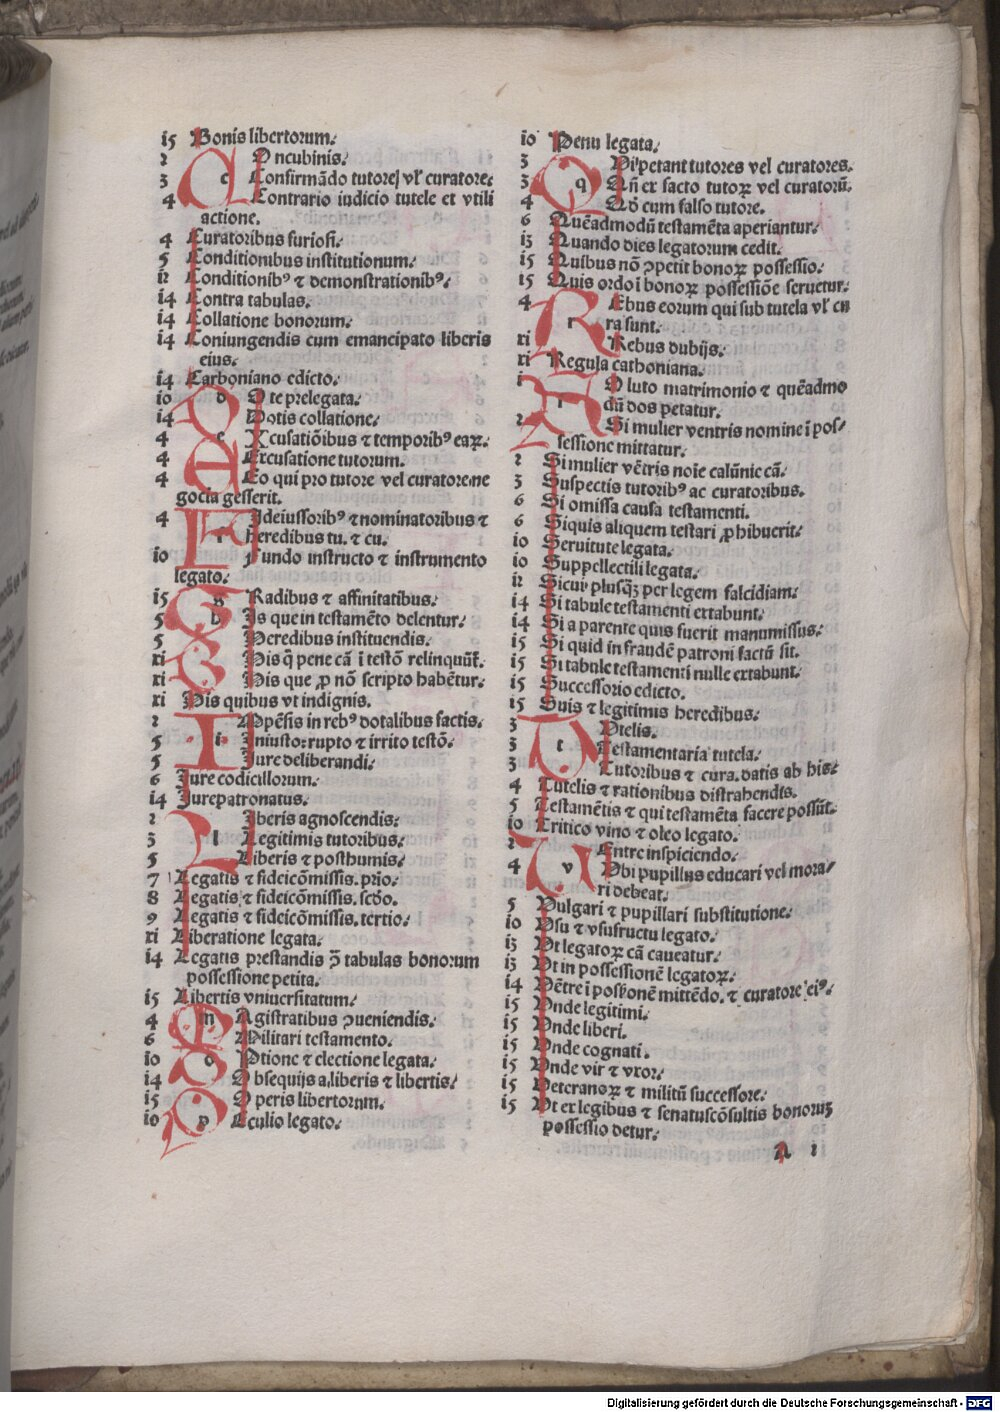 i5 Bonis libertorum.
2 c Oncubinis.
3 Confirmãdo tutore vl' curatore.
4 Contrario iudicio tutele et vtili
actione.
4 Curatoribus furiosi.
5 Conditionibus institutionum.
ii Conditionibꝰ ⁊ demonstrationibꝰ.
i4 Contra tabulas.
i4 Collatione bonorum.
i4 Coniungendis cum emancipato liberis
eius.
i4 Carboniano edicto.
io d Ote prelegata.
i4 Dotis collatione.
4 e Xcusatiõibus ⁊ temporibꝰ eaꝝ.
4 Excusatione tutorum.
4 Eo qui pro tutore vel curatore ne
gocia gesserit.
4 f Ideiussoribꝰ ⁊ nominatoribus ⁊
heredibus tu. ⁊ cu.
io Fundo instructo ⁊ instrumento
legato.
i5 g Radibus ⁊ affinitatibus.
5 h Is que in testamẽto delentur.
5 Heredibus instituendis.
xi His q̃ pene cã ĩ testõ relinquũt.
xi His que ꝓ nõ scripto habẽtur.
xi His quibus vt indignis.
2 Mpẽsis in rebꝰ dotalibus factis.
5 i Iniusto rupto ⁊ irrito testõ.
5 Iure deliberandi.
6 Iure codicillorum.
i4 Iurepatronatus.
2 Iberis agnoscendis.
3 l Legitimis tutoribus.
5 Liberis ⁊ posthumis.
7 Legatis ⁊ fideicõmissis. prio.
8 Legatis ⁊ fideicõmissis. scdo.
9 Legatis ⁊ fideicõmissis. tertio.
xi Liberatione legata.
i4 Legatis prestandis ↄ̃ tabulas bonorum
possessione petita.
i5 Libertis vniuersitatum.
4 m Agistratibus ↄueniendis.
6 Militari testamento.
io o Ptione ⁊ electione legata.
i4 Obsequijs a liberis ⁊ libertis.
i5 Operis libertorum.
io p Eculio legato.
io Penu legata.
3 Vi petant tutores vel curatores.
3 q Qñ ex facto tutoꝝ vel curatorũ.
4 Qd cum falso tutore.
6 Quẽadmodũ testamẽta aperiantur.
i3 Quando dies legatorum cedit.
i5 Quibus nõ ↄpetit bonoꝝ possessio.
i5 Quis ordo ĩ bonoꝝ possessiõe seruetur.
4 r Ebus eorum qui sub tutela vl' cu
ra sunt.
xi Rebus dubijs.
xi Regula cathoniana.
i Oluto matrimonio ⁊ quẽadmo
dũ dos petatur.
2 Si mulier ventris nomine ĩ pos/
sessione mittatur.
2 Si mulier vẽtris noĩe calũnie cã.
3 Suspectis tutoribꝰ ac curatoribus.
6 Si omissa causa testamenti.
6 Siquis aliquem testari ꝓhibuerit.
io Seruitute legata.
io Suppellectili legata.
ii Sicui plusqȝ per legem falcidiam.
i4 Si tabule testamenti extabunt.
i4 Si a parente quis fuerit manumissus.
i5 Si quid in fraudẽ patroni factũ sit.
i5 Si tabule testamenti nulle extabunt.
i5 Successorio edicto.
i5 Suis ⁊ legitimis heredibus.
3 Vtelis.
3 t Testamentaria tutela.
3 Tutoribus ⁊ cura. datis ab his.
4 Tutelis ⁊ rationibus distrahendis.
5 Testamẽtis ⁊ qui testamẽta facere possũt.
io Tritico vino ⁊ oleo legato.
2 Entre inspiciendo.
4 v Vbi pupillus educari vel mora/
ri debeat.
5 Vulgari ⁊ pupillari substitutione.
io Vsu ⁊ vsufructu legato.
i3 Vt legatoꝝ cã caueatur.
i3 Vt in possessionẽ legatoꝝ.
i4 Vẽtre ĩ possonẽ mittẽdo. ⁊ curatore eiꝰ.
i5 Vnde legitimi.
i5 Vnde liberi.
i5 Vnde cognati.
i5 Vnde vir ⁊ vxor.
i5 Veteranoꝝ ⁊ militũ successore.
i5 Vt ex legibus ⁊ senatuscõsultis bonoruȝ
possessio detur.
a 1
Digitalisierung gefördert durch die Deutsche Forschungsgemeinschaft - DFG